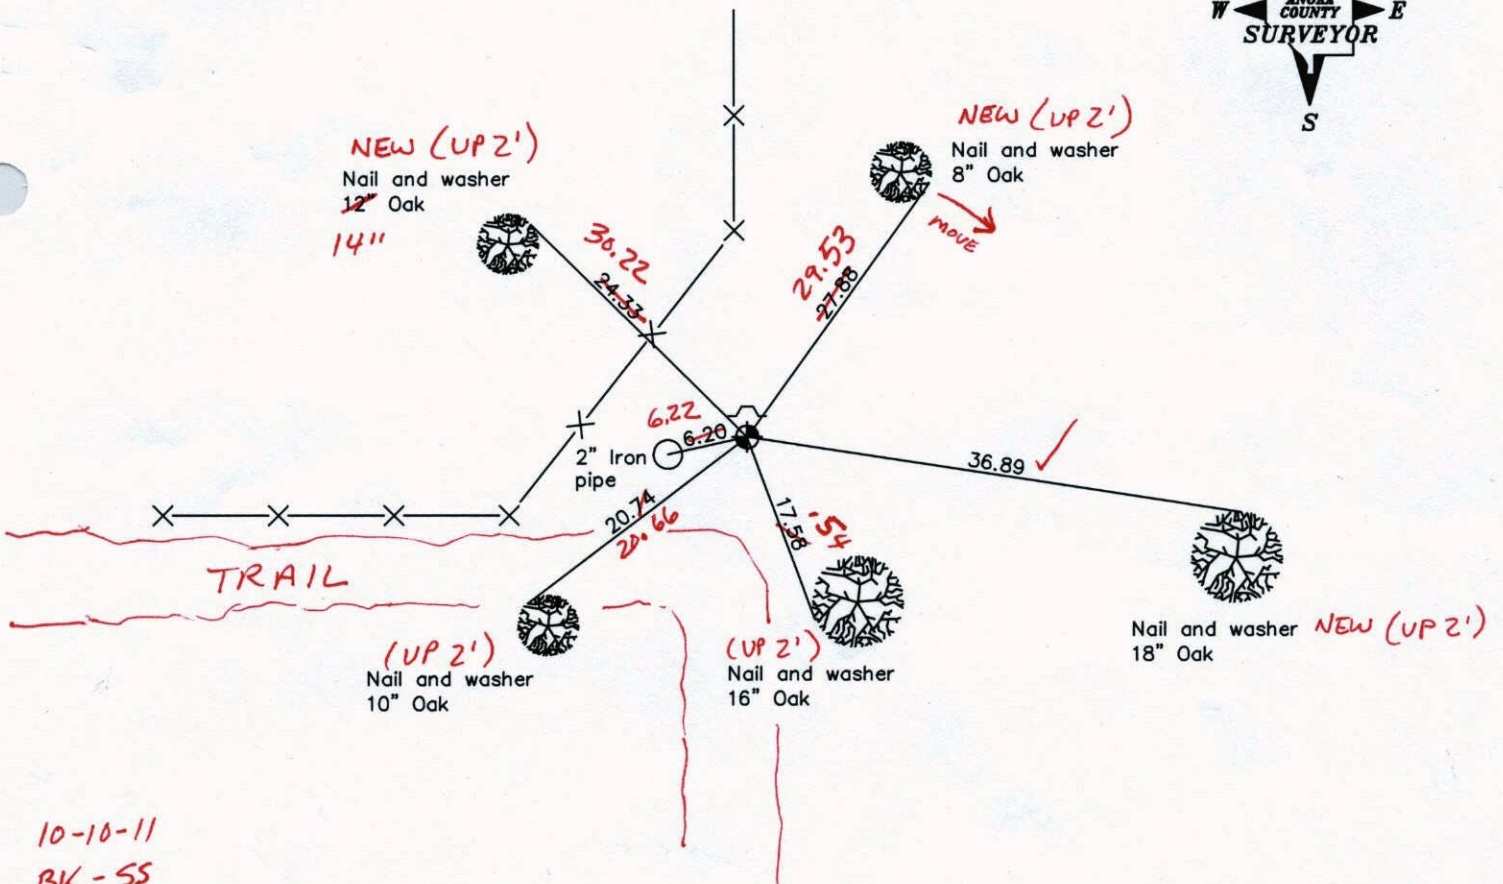 ANOKA
W COUNTY E
SURVEYOR
S
NEW (UP 2')
Nail and washer
12" Oak
14"
NEW (UP 2')
Nail and washer
8" Oak
MOVE
30.22
24.33
29.53
27.88
6.22
6.20
2" Iron
pipe
36.89
20.74
20.66
17.58
.54
TRAIL
(UP 2')
Nail and washer
10" Oak
(UP 2')
Nail and washer
16" Oak
Nail and washer NEW (UP 2')
18" Oak
10-10-11
BK - SS